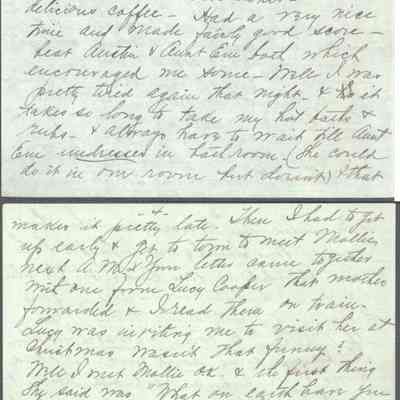 delicious coffee - Had a very nice
time and made fairly good score -
beat Austin & Aunt Em both which
encouraged me some - Well I was
pretty tired again that night - & it
takes so long to take my hot baths &
rubs - & always have to wait till Aunt
Em undresses in bath room. (She could
do it in our room but doesn't) & that
makes it pretty late. Then I had to get
up early & get to town to meet Mollie
next A.M. Your letter came together
with one from Lucy Cooper that mother
forwarded & I read them on train -
Lucy was inviting me to visit her at
Christmas. Wasn't that funny?
Well I met Mollie OK & the first thing
she said was "What on earth have you